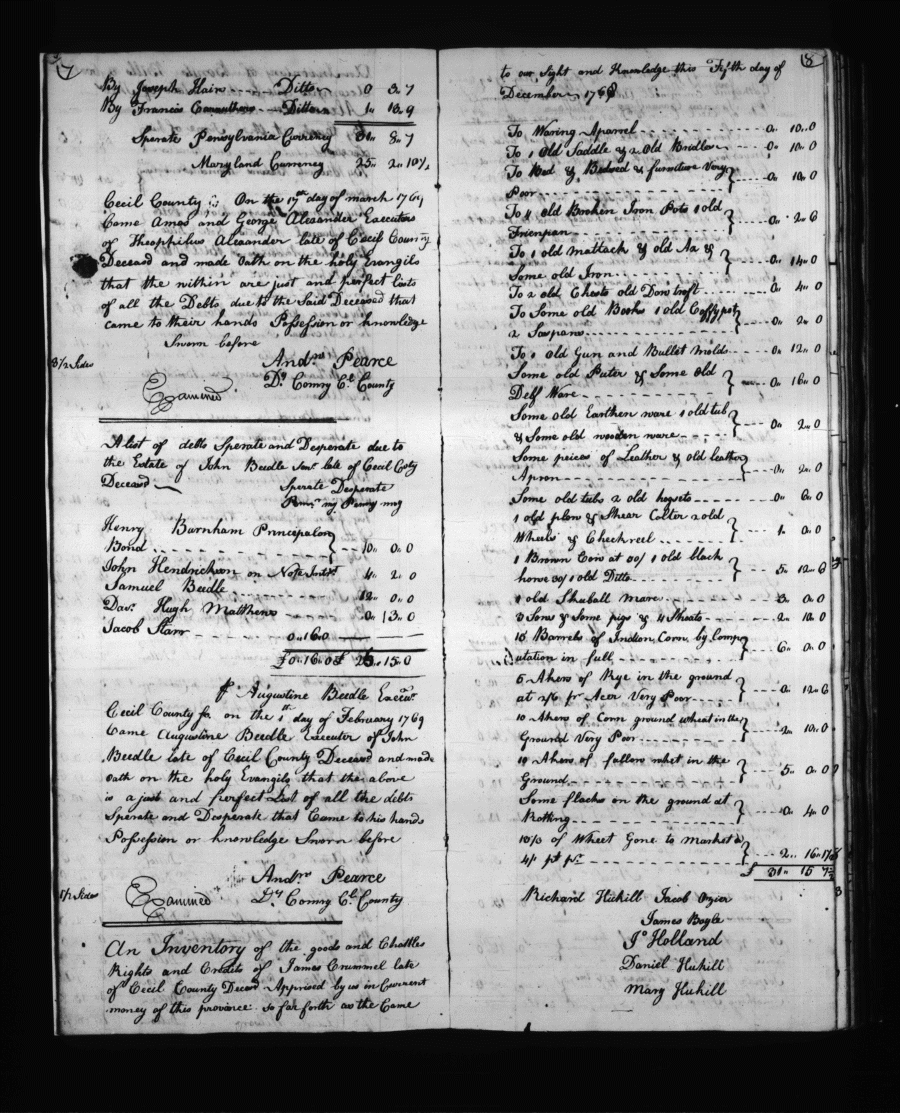 7
By Joseph Hain Ditto 0 3. 7
By Francis Ditto 1„ 13„ 9
Sperate Pensylvania Currency 31„ 8„ 7
Maryland Currency 25„ 2„ 10½
Cecil County On the 17th day of march 1769
Came Amos and George Alexander Executors
of Theophilus Alexander late of Cecil County
Deceasd and made Oath on the holy Evangils
that the within are just and perfect Lists
of all the Debts due to the Said Deceased that
came to their hands Possession or knowledge
Sworn before
3/2 Sides
Andw Pearce
Dy Comry Cl County
Examined
A list of debts Sperate and Desperate due to
the Estate of John Beedle Senr late of Cecil Coty
Deceasd
Sperate Desperate
Henry Burnham Principalon
Bond 10„ 0„ 0
John Hendrickson on Note Intrst 4„ 2„ 0
Samuel Beedle 12„ 0„ 0
Davd Hugh Matthews 0„ 13„ 0
Jacob Starr 0„16„0
£0„16„0 £ 26„15„0
Augustine Beedle Execr
Cecil County ss on the 1st day of February 1769
Came Augustine Beedle Executor of John
Beedle late of Cecil County Deceasd and made
oath on the holy Evangils that the above
is a just and perfect List of all the debts
Sperate and Desperate that Came to his hands
Possession or knowledge Sworn before
1/2 Sides
Andw Pearce
Dy Comry Cl County
Examined
An Inventory of the goods and Chattles
Rights and Credits of James Crummel late
of Cecil County Deceasd Apprised by us in Currant
money of this province so far forth as the Came
8
to our Sight and Knowledge this Fifth day of
December
To Waring Aparrel 0„ 10„ 0
To 1 Old Saddle & 2 Old Bridles 0„ 10„ 0
To Bed & Bedsted & furniture Very
Poor 0„ 10„ 0
To 4 old Broken Iron Pots 1 old
Frienpan 0„ 2„ 6
To 1 old Mattack & old Ax &
Some old Iron 0„ 14„ 0
To 2 old Chests old Dowtroft 0„ 4„ 0
To Some old Books 1 old Coffypot
2 Saspans 0„ 2„ 0
To 1 Old Gun and Bullet Molds 0„ 12„ 0
Some old Puter & Some Old
Delf Ware 0„ 16„ 0
Some old Earthen ware 1 old tub
& Some old wooden ware 0„ 2„ 0
Some peices of Leather & old leather
Apron 0„ 2„ 0
Some old tubs 2 old hogsets 0„ 6„ 0
1 old plow & Shear Colter 2 old
Wheels & Checkreel 1„ 0„ 0
1 Brown Cow at 60/ 1 old black
horse 30/ 1 old Ditto 5„ 12„ 6
1 old Skuball Mare 3„ 0„ 0
3 Sows & Some pigs & 4 Shoats 2„ 10„ 0
15 Barrels of Indian Corn by Comp
utation in full 6„ 0„ 0
5 Akers of Rye in the ground
at 2/6 pr Acer Very Poor 0„ 12„ 6
10 Akers of Corn ground wheat in the
Ground Very Poor 2„ 10„ 0
10 Akers of fallow whet in the
Ground 5„ 0„ 0
Some flachs on the ground at
Rotting 0„ 4„ 0
10½ of Wheet Gone to Market a
4/
£ 31„ 15 7½
Richard Hukill Jacob Ozier
James Boyle
Jo Holland
Daniel Hukill
Mary Hukill